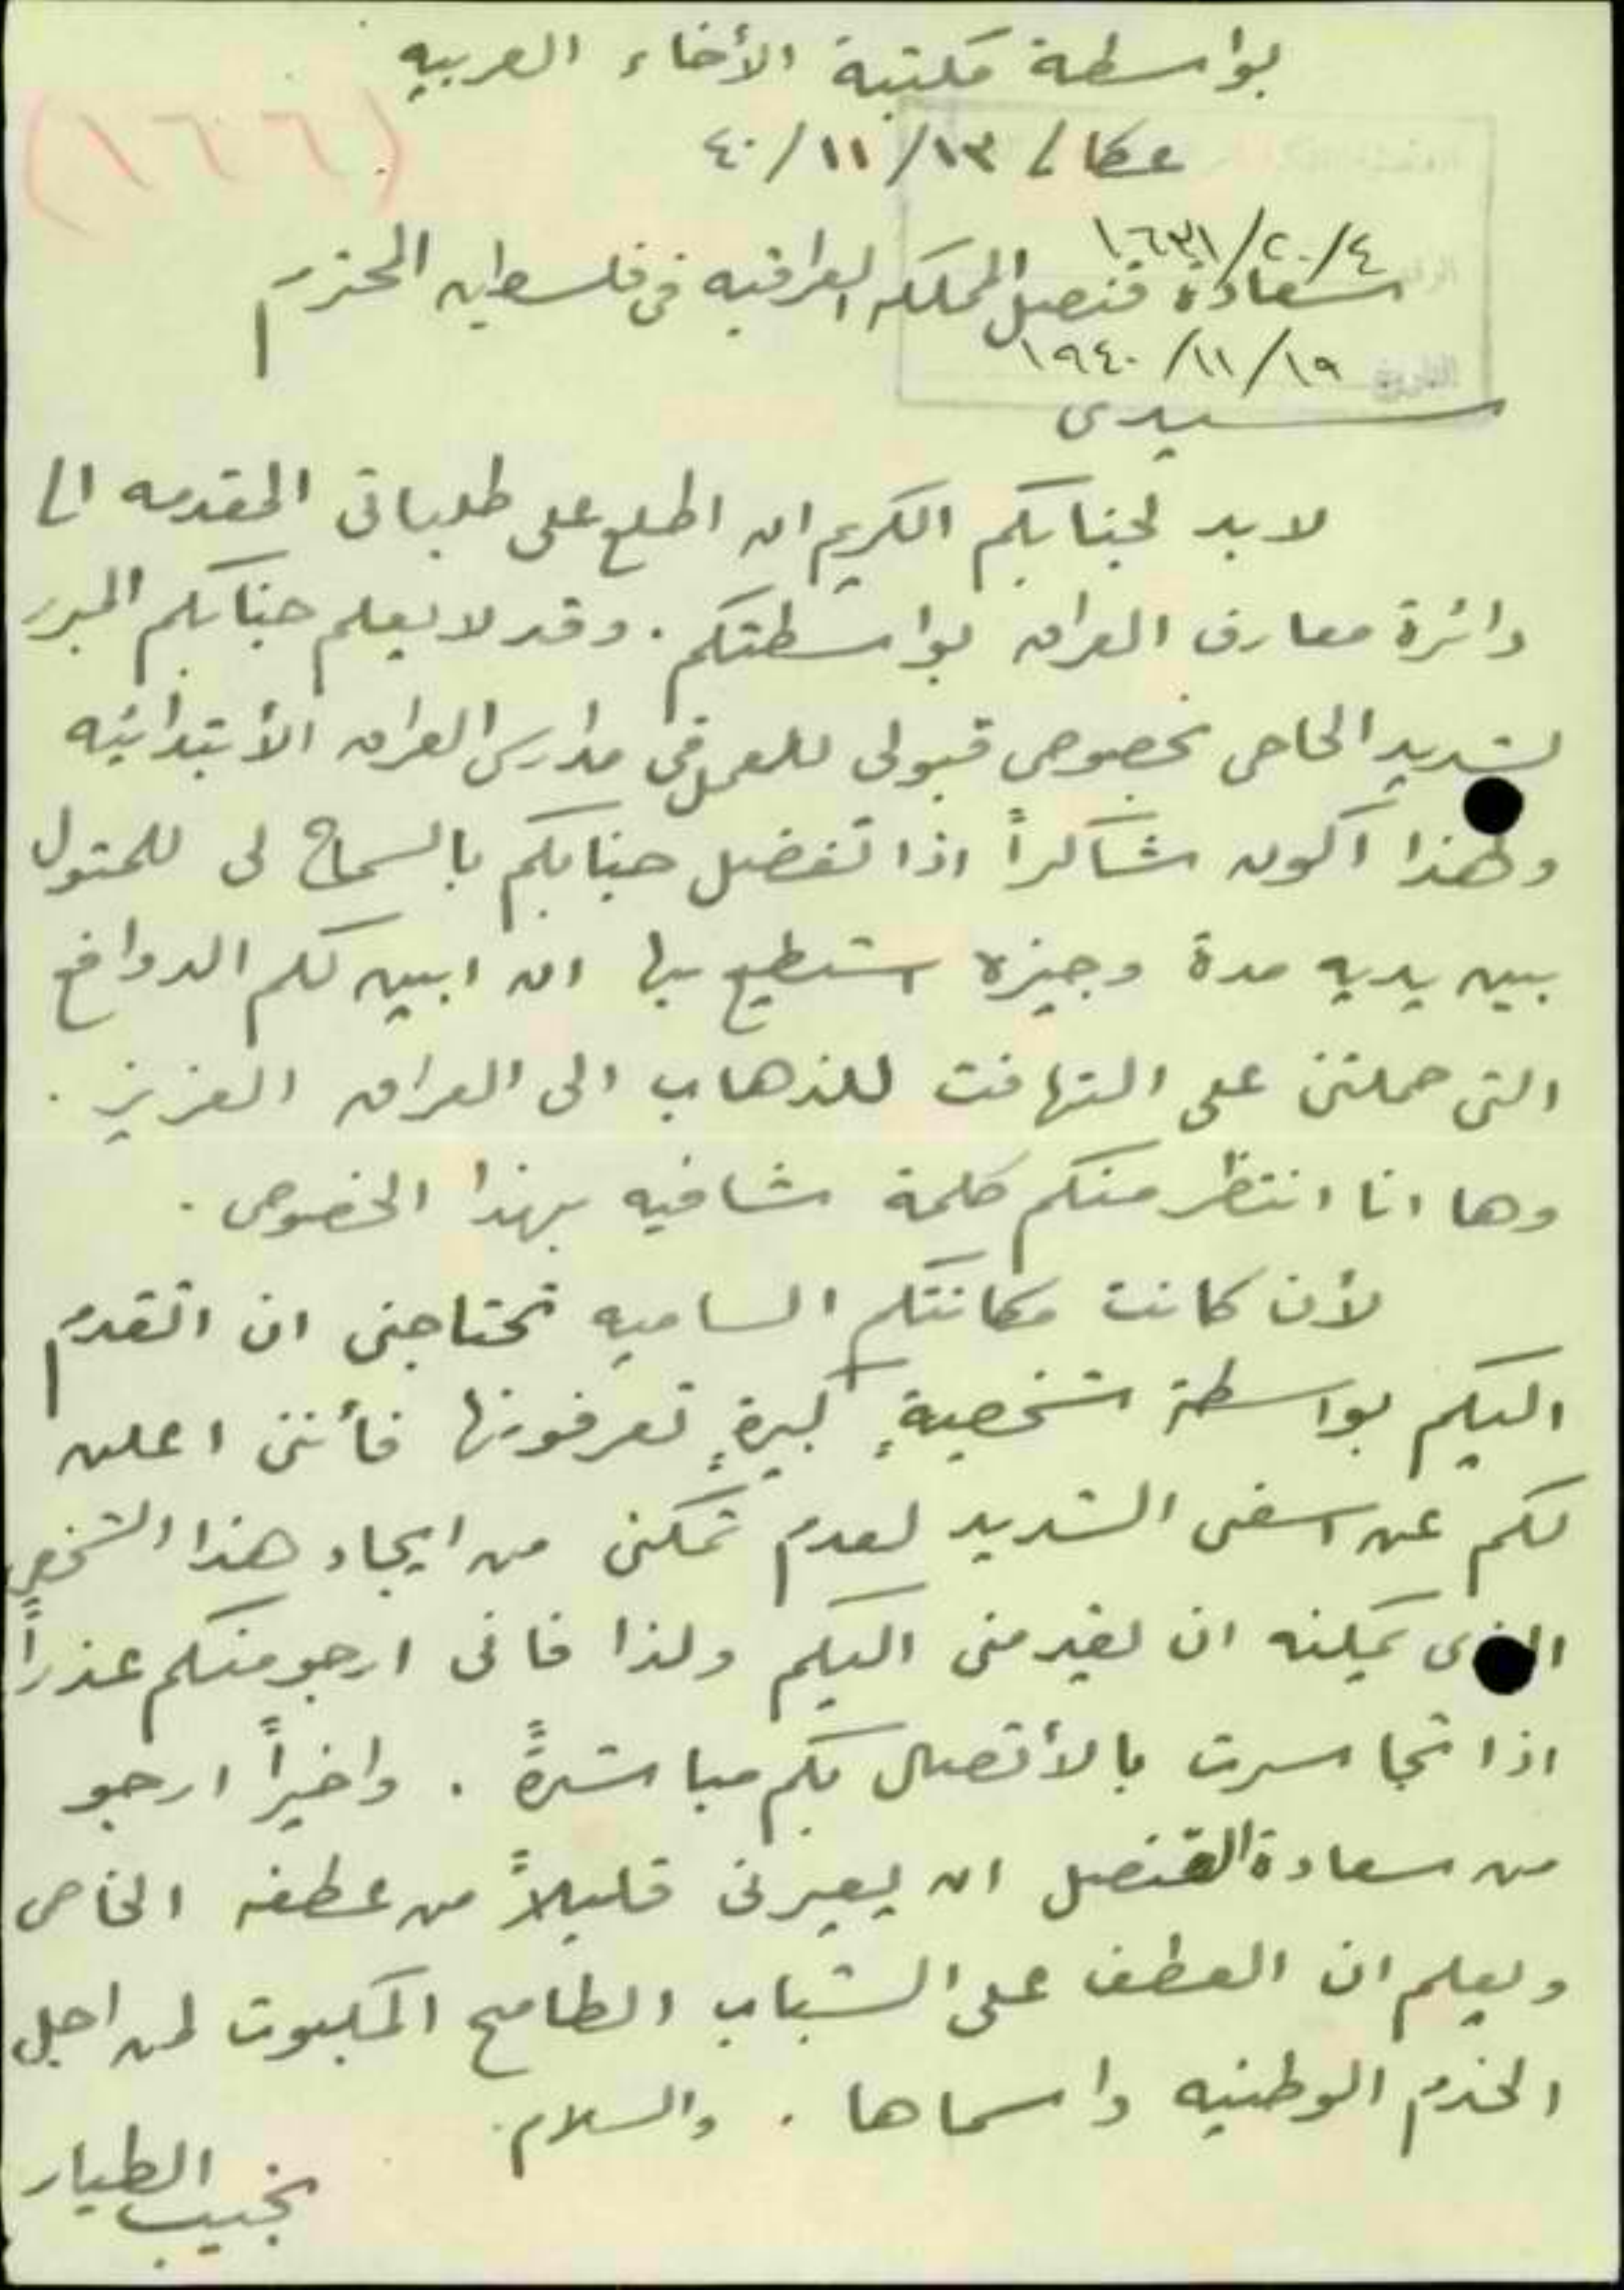 بواسطة مكتبة الأخاء العربيه
(١٦٦)
عكا / ١٣/ ١١/ ٤٠
١٦٣١/٢٠/٤
سعادة قنصل المملكه العراقيه في فلسطين المحترم
١٩٤٠/١١/١٩
التاريخ
سيدي
لا بد لجنابكم الكريم ان اطلع على طلباتي المقدمه الى
دائرة معارف العراق بواسطتكم . وقد لا يعلم جنابكم المبرر
لشديد الحاحي بخصوص قبولي للعمل في مدارس العراق الأبتدائيه
ولهذا اكون شاكراً اذا تفضل جنابكم بالسماح لي للمثول
بين يديه مدة وجيزه استطيع بها ان ابين لكم الدوافع
التي حملتني على التهافت للذهاب الى العراق العزيز .
وها انا انتظر منكم كلمة شافيه بهذا الخصوص .
لأن كانت مكانتكم الساميه تحتاجني ان اتقدم
اليكم بواسطة شخصيةٍ كبيرةٍ تعرفونها فأنني اعلن
لكم عن اسفي الشديد لعدم تمكني من ايجاد هذا الشخص
الذي يمكنه ان يقدمني اليكم ولذا فاني ارجو منكم عذراً
اذا تجاسرت بالأتصال بكم مباشرةً . واخيراً ارجو
من سعادة القنصل ان يعيرني قليلاً من عطفه الخاص
وليعلم ان العطف على الشباب الطامح المكبوت لمن اجل
الخدم الوطنيه واسماها . والسلام .
نجيب الطيار